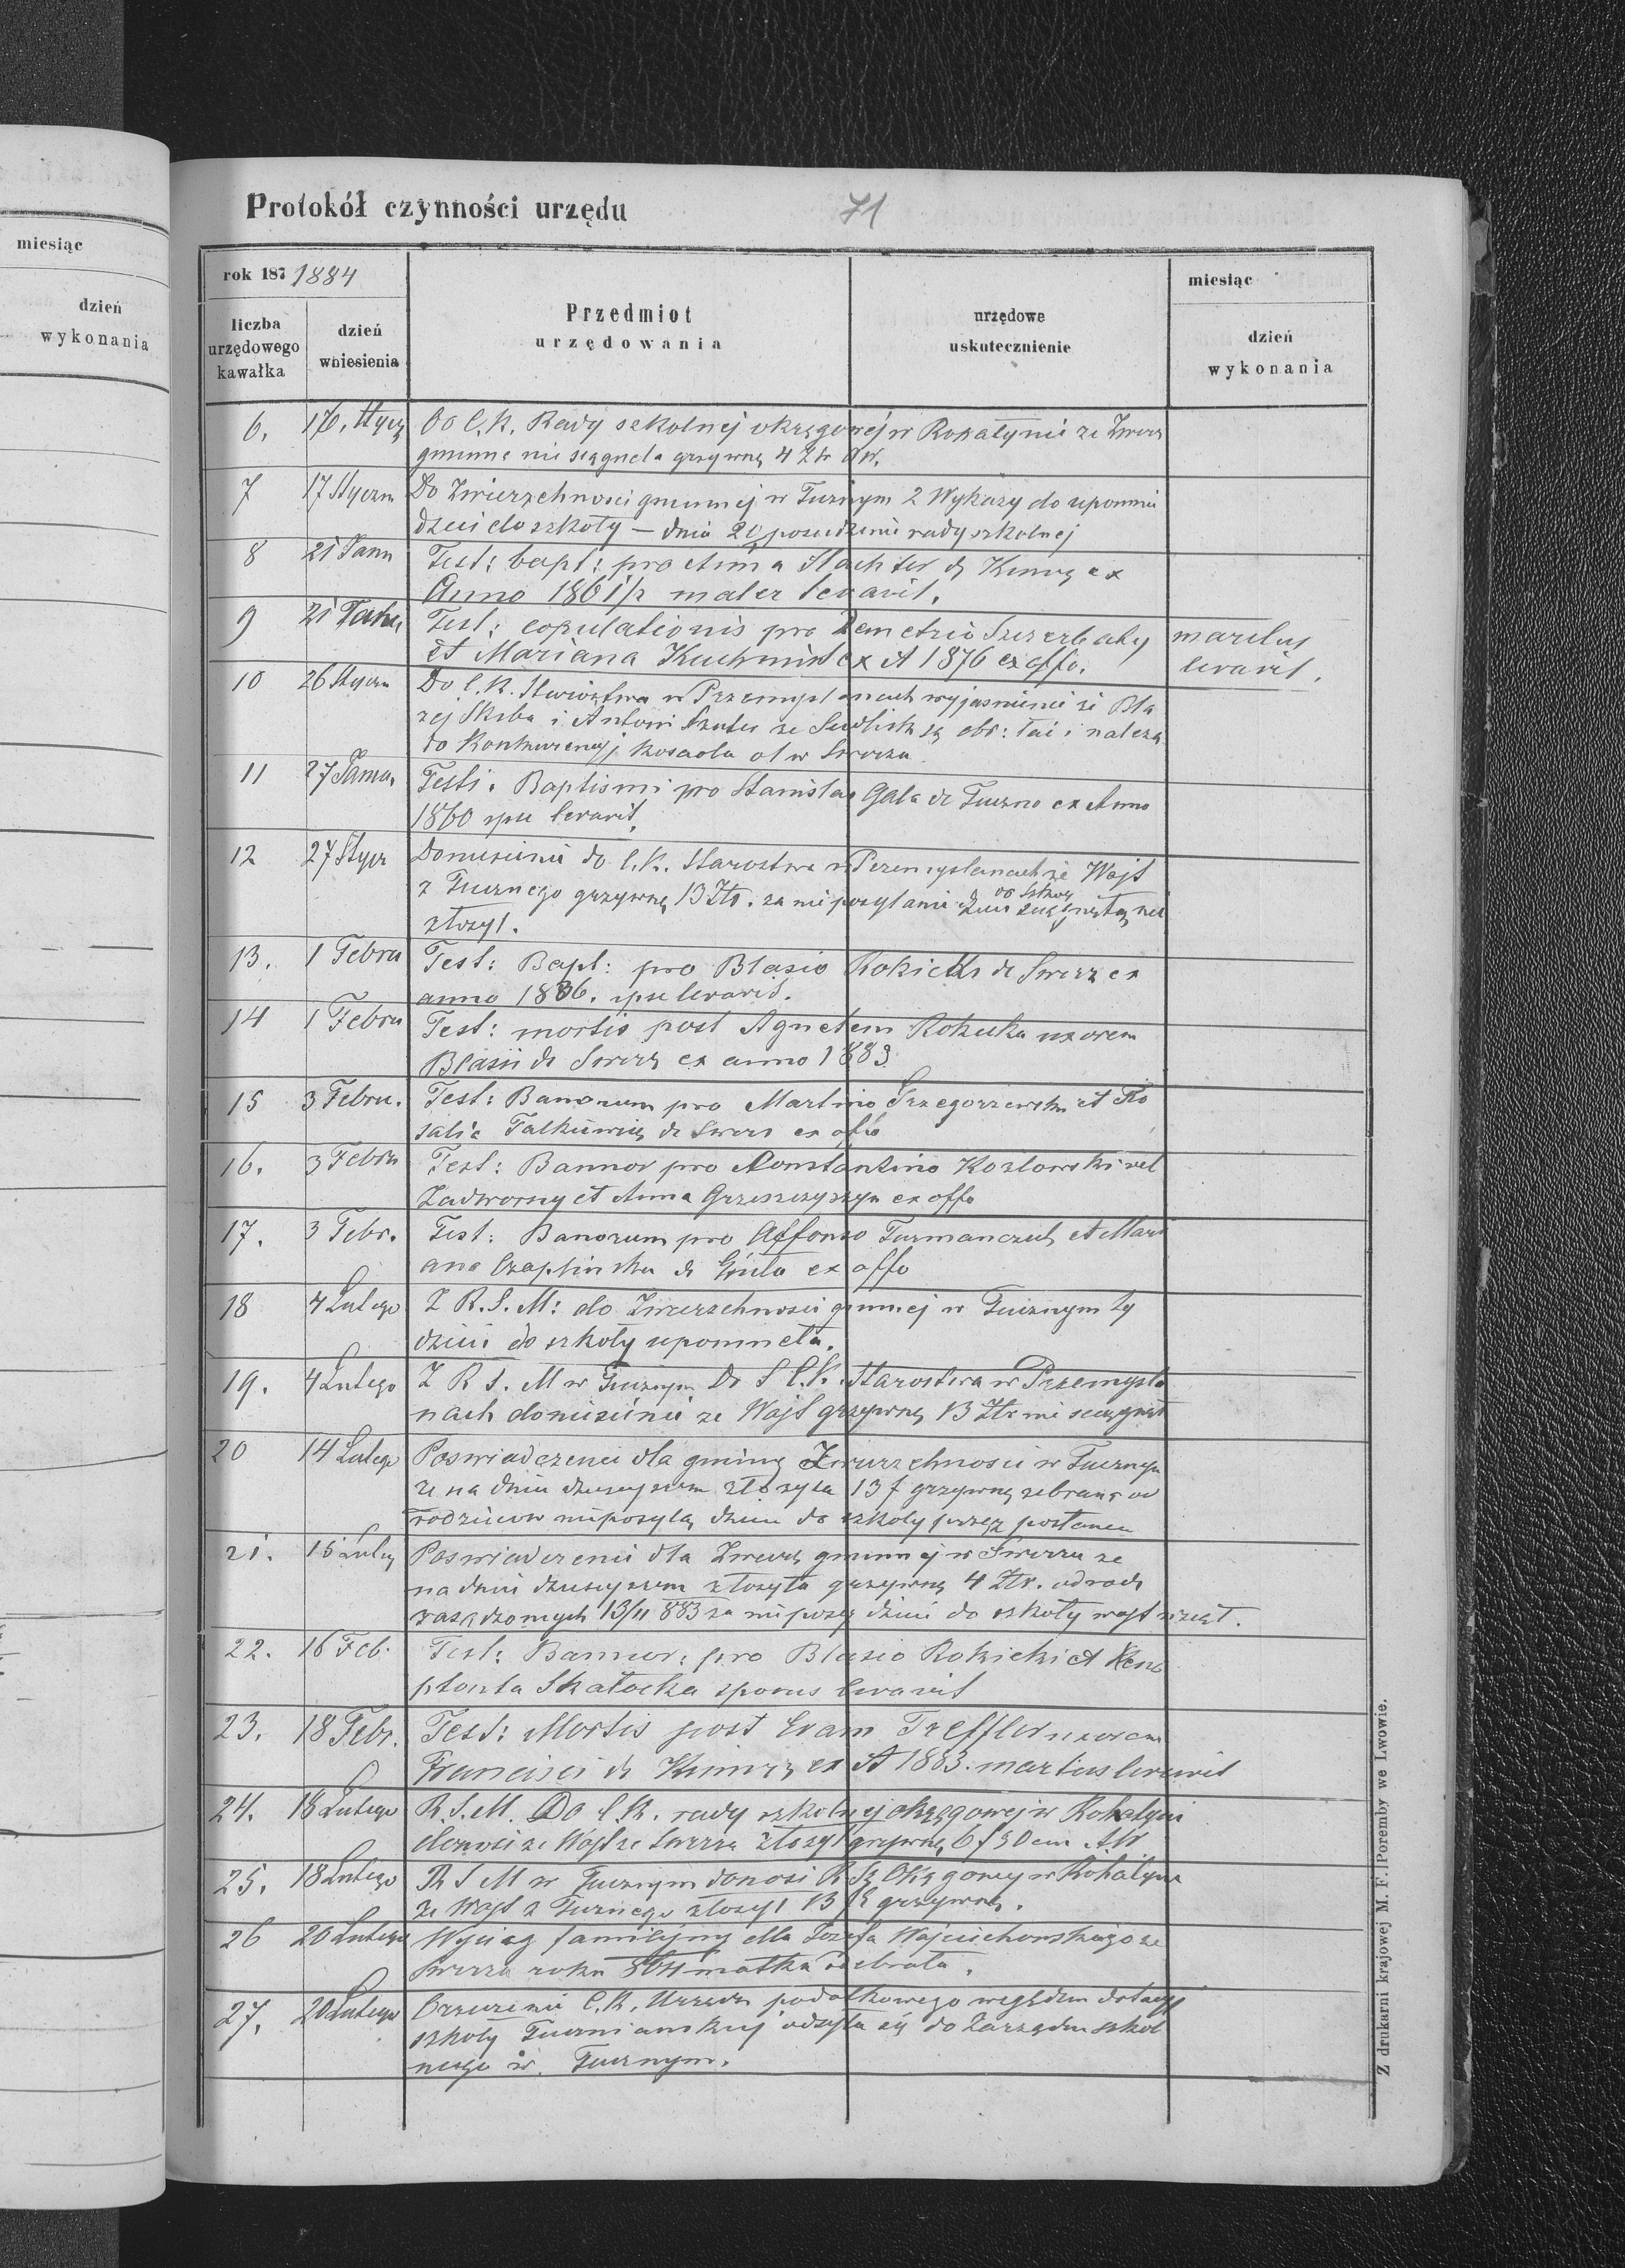 miesiąc
dzień
wykonania
Protokół czynności urzędu
71
rok 187 1884
liczba
urzędowego
kawałka
dzień
wniesienia
Przedmiot
urzędowania
urzędowe
uskutecznienie
miesiąc
dzień
wykonania
6. 17. Stycz Do C.K. Rady szkolnej okręgowej w Rohatynie ze Zwierz
gminna nie sciągneła grzywnę 4 Złr AW.
7 17 Styczn Do Zwierzchnosci gminnej w Tucznym 2 Wykazy do upomni
dzieci do szkoły — dnia 20 posiedzenie rady szkolnej
8 21 Janu Test: bapt: pro Anna Slachter de Kimirz ex
Anno 1861/2 mater levavit.
9 21 Janu Test: copulationis pro Demetrio Szczerbaty maritus
et Mariana Kuchmist ex A 1876 ex offo. levavit.
10 26 Styczn Do C.K. Starostwa w Przemyslanach wyjasnienie ze Bła
zej Skiba i Antoni ze są obr: łac i nalezą
do Konkurencyi koscioła w Swirzu
11 27 Janua Testi. Baptismi pro Stanislao Gala de Tuczno ex Anno
1860 ipse levavit.
12 27 Stycz Doniesienie do C.K. Starostwa w Przemyslanach ze Wojt
z Tucznego grzywnę 13 Złr. za nieposyłanie dzieci do szkoły nie
złozył.
13. 1 Febru Test: Bapt: pro Blasio Rokicki de Swirz ex
anno 1836. ipse levavit.
14 1 Febru Test: mortis post Agnetem Rokicka uxorem
Blasii de Swirz ex anno 1883
15 3 Febru. Test: Banorum pro Martino Grzegorzewski et Ro
salia de Swirz ex offo
16. 3 Febru Test: Bannor pro Constantino Kozlowski vel
Zadworny et Anna Grzeszczyszyn ex offo
17. 3 Febr. Test: Banorum pro Alfonso Furmanczuk et Mari
ana Czaplinska de ex offo
18 4 Lutego Z R.S.M: do Zwierzchnosci gminnej w Tucznym by
dzieci do szkoły upomneła.
19. 4 Lutego Z R S. M w Tucznym Do C.K. Starostwa w Przemysla
nach doniesienie ze Wojt grzywnę 13 Złr nie sciągnął
20 14 Lutego Poswiadczenie dla gminy Zwierzchnosci w Tucznym
ze na dniu dzisiejszem złozyła 13 f grzywnę zebraną od
rodzicow nieposyłą dzieci do szkoły przez
21. 15 Luteg Poswiadczenie dla Zwierz gminnej w Swirzu ze
na dniu dzisiejszem złozyła grzywnę 4 Złr. od rodz
zasądzonych 13/11 883 za nieposył dzieci do szkoły wojt wziął.
22. 16 Feb. Test: Bannor: pro Blasio Rokicki et Xeno
phonta Skałocka sponus levavit
23. 18 Febr. Test: Mortis post Evam Treffler uxorem
Francisci de Kimirz ex A 1883. maritus levavit
24. 18 Lutego R.S.M. Do C.K. rady szkolnej okręgowej w Rohatyni
donosi ze Wojt ze Swirza złozył grzywnę 6 f 50 cen AW
25. 18 Lutego R S M w Tucznym donosi R Sz Okręgowey w Rohatyni
ze Wojt z Tucznego złozył 13 f grzywnę.
26 20 Lutego Wyciag familijny dla Jozefa Wojciechowskiego ze
Swirza roku 864 matka odebrała.
27. 20 Lutego Orzeczenie C.K. Urzędu podatkowego względem dotacyi
szkoły Tuczniańskiej odsyła się do Zarządu szkol
nego w Tucznym.
Z drukarni krajowej M. F. Poremby we Lwowie.